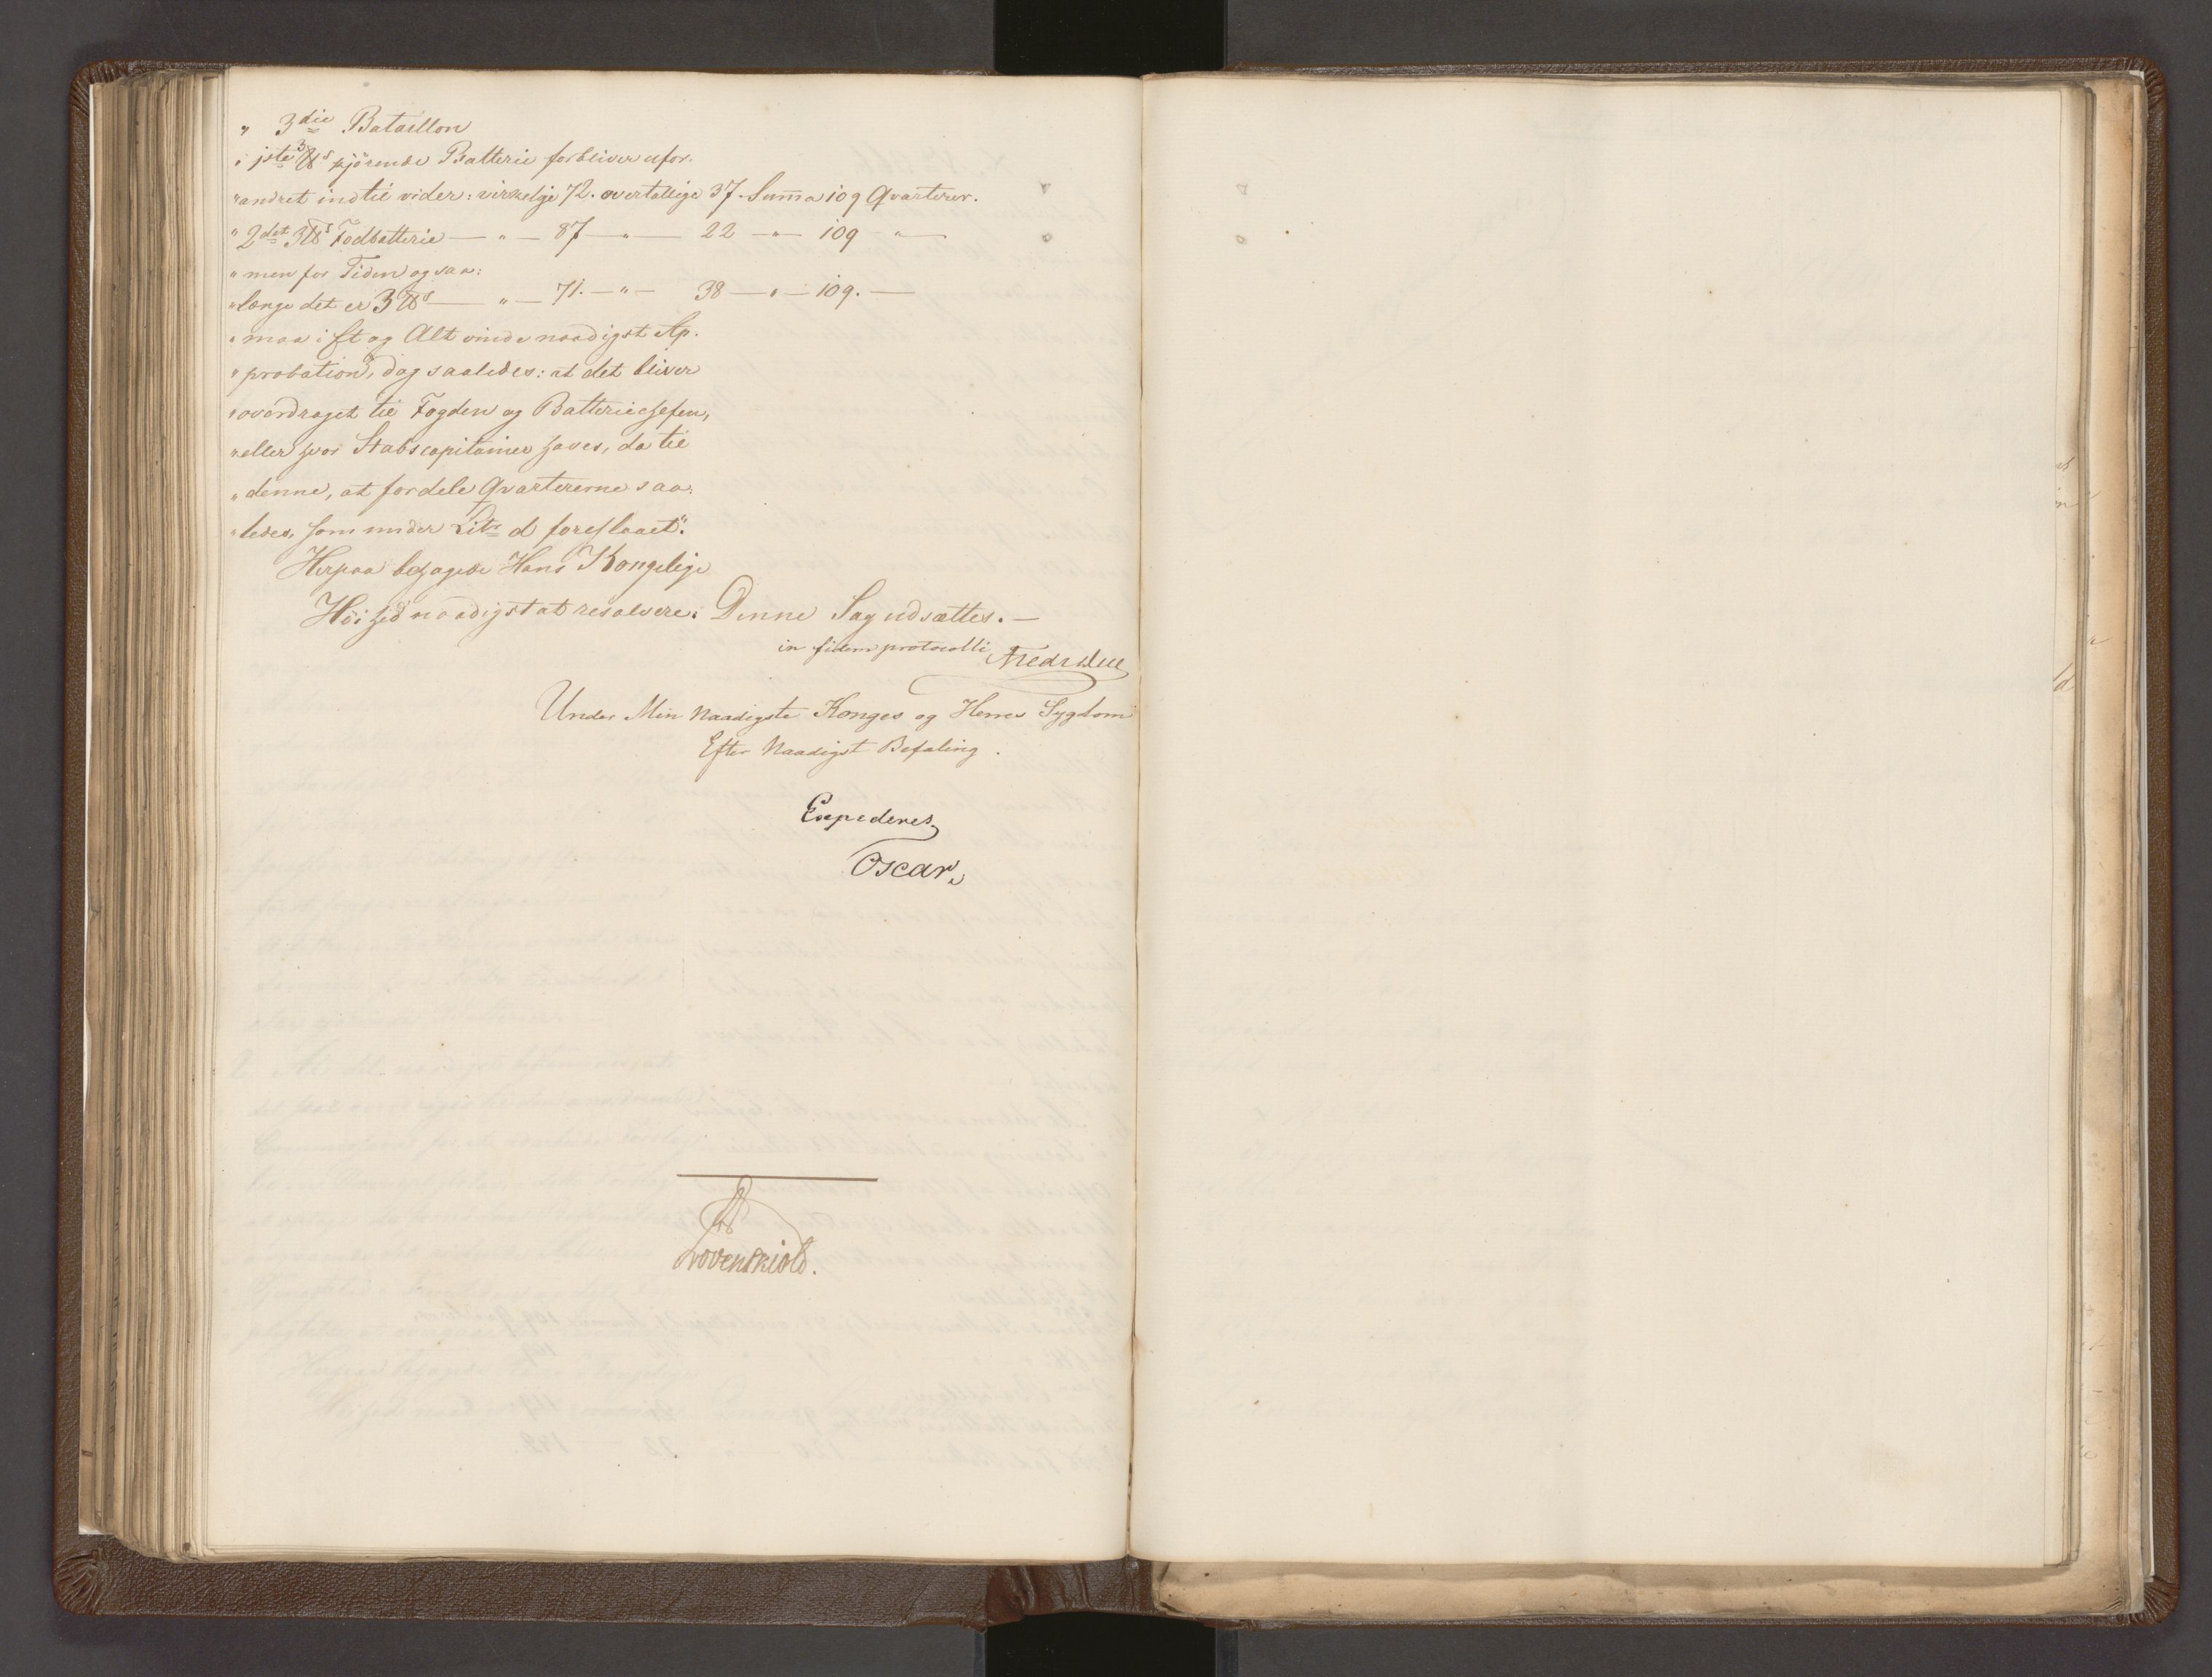 " 3die Bataillon
" 1ste 3 ℔s kjörende Batterie forbliver ufor¬
"andret indtil vider: virkelige 72. overtallige 37. Summa 109 Qvarterer.
" 2det 3 ℔s Fodbatterie — " — 87 — " — 22 — " — 109 — " —
" men for Tiden og saa:
"længe det er 3 ℔s — " — 71. — " — 38 — " — 109. —
" maa i Et og Alt vinde naadigst Ap¬
" probation, dog saaledes: at det bliver
" overdraget til Fogden og Batteriechefen,
" eller hvor Stabscapitainer haves, da til
" denne, at fordele Qvartererne saa¬
" ledes, som under Litr d foreslaaet".
Herpaa behagede Hans Kongelige
Höihed naadigst at resolvere: Denne Sag udsættes. —
in fidem protocolli Fredr Due
Under Min Naadigste Konges og Herres Sygdom
Efter Naadigst Befaling.
Expederes
Oscar.
Løvenskiold.